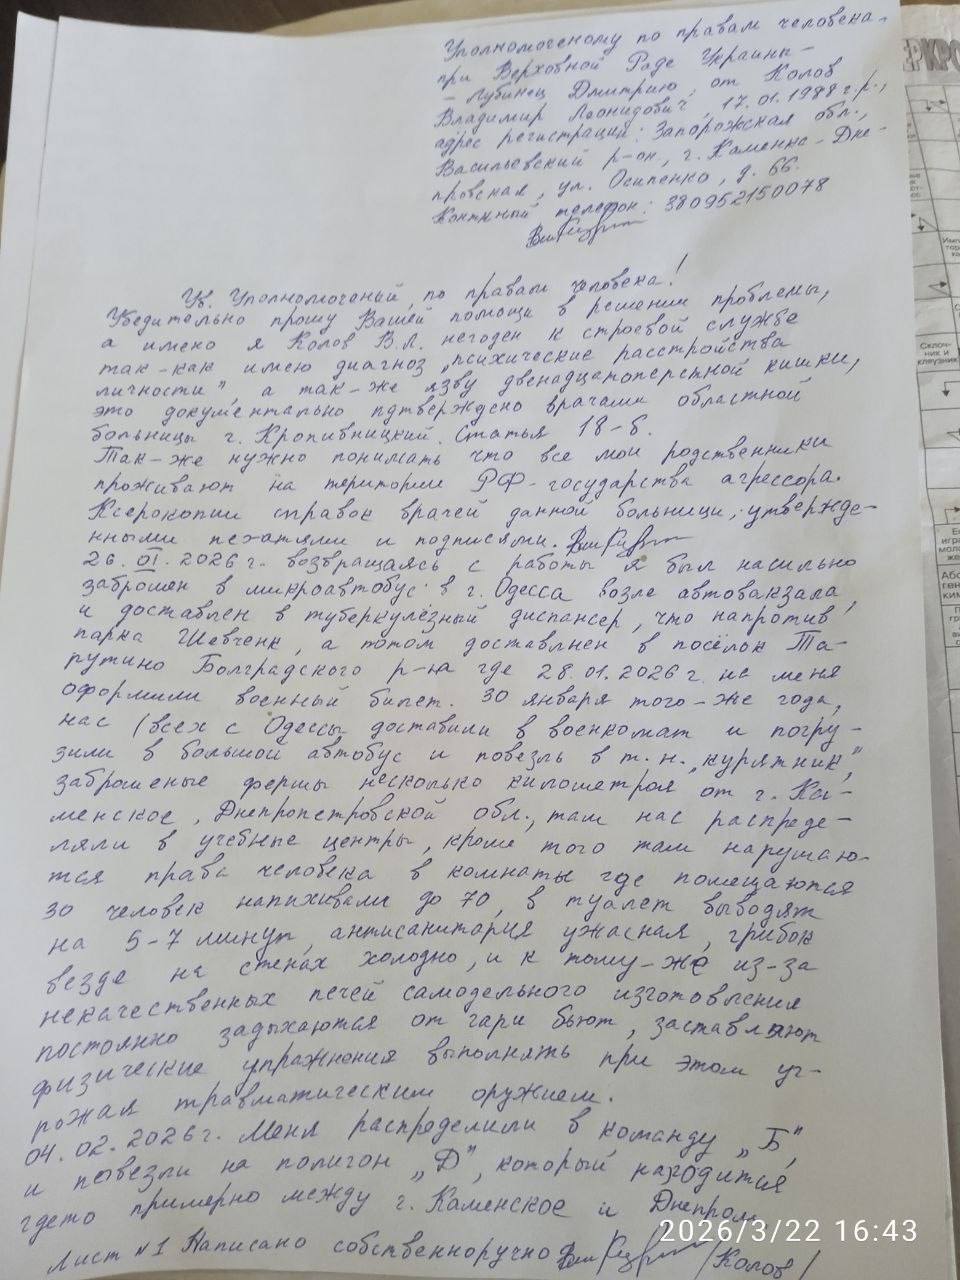 Уполномоченому по правам человека,
при Верховной Раде Украины –
– Лубинец Дмитрию, от Колов
Владимир Леонидович, 17.01.1988 г.р.,
адрес регистрации: Запорожская обл.,
Васильевский р-он, г. Каменка-Дне-
провская, ул. Осипенко, д. 66.
телефон: 380952150078
Ув. Уполномоченый, по правам человека!
Убедительно прошу Вашей помощи в решении проблемы,
а имено я Колов В.Л. негоден к строевой службе
так-как имею диагноз „психические расстройства
личности" а так-же язву двенадцатоперстной кишки,
это документально пдтверждено врачами областной
больницы г. Кропивницкий. Статья 18-б.
Так-же нужно понимать что все мои родственники
проживают на територии РФ-государства агрессора.
Ксерокопии справок врачей данной больници, утвержде-
нными печатями и подписями.
26.01.2026 г. возвращаясь с работы я был насильно
заброшен в микроавтобус в г. Одесса возле автовокзала,
и доставлен в туберкулёзный диспансер, что напротив
парка Шевченк, а потом доставлен в посёлок Та-
рутино Болградского р-на где 28.01.2026 г. на меня
оформили военный билет. 30 января того-же года,
нас (всех с Одессы доставили в военкомат и погру-
зили в большой автобус и повезль в т.н. „курятник",
заброшеные фермы несколько километров от г. Ка-
менское, Днепропетровской обл., там нас распреде-
ляли в учебные центры, кроме того там нарушаю-
тся права человека в комнаты где помещаются
30 человек напихивали до 70, в туалет выводят
на 5-7 минут, антисанитария ужасная, грибок
везде на стенах холодно, и к тому-же из-за
некачественных печей самодельного изготовления
постоянно задыхаются от гари бьют, заставляют
физические упражнения выполнять при этом уг-
рожая травматическим оружием.
04.02.2026 г. Меня распределили в команду „Б",
и повезли на полигон „Д", который находится
гдето примерно между г. Каменское и Днепром.
Лист №1 Написано собственноручно /Колов/
2026/3/22 16:43
ЕРКРО
Склоч-
ник и
кляузник